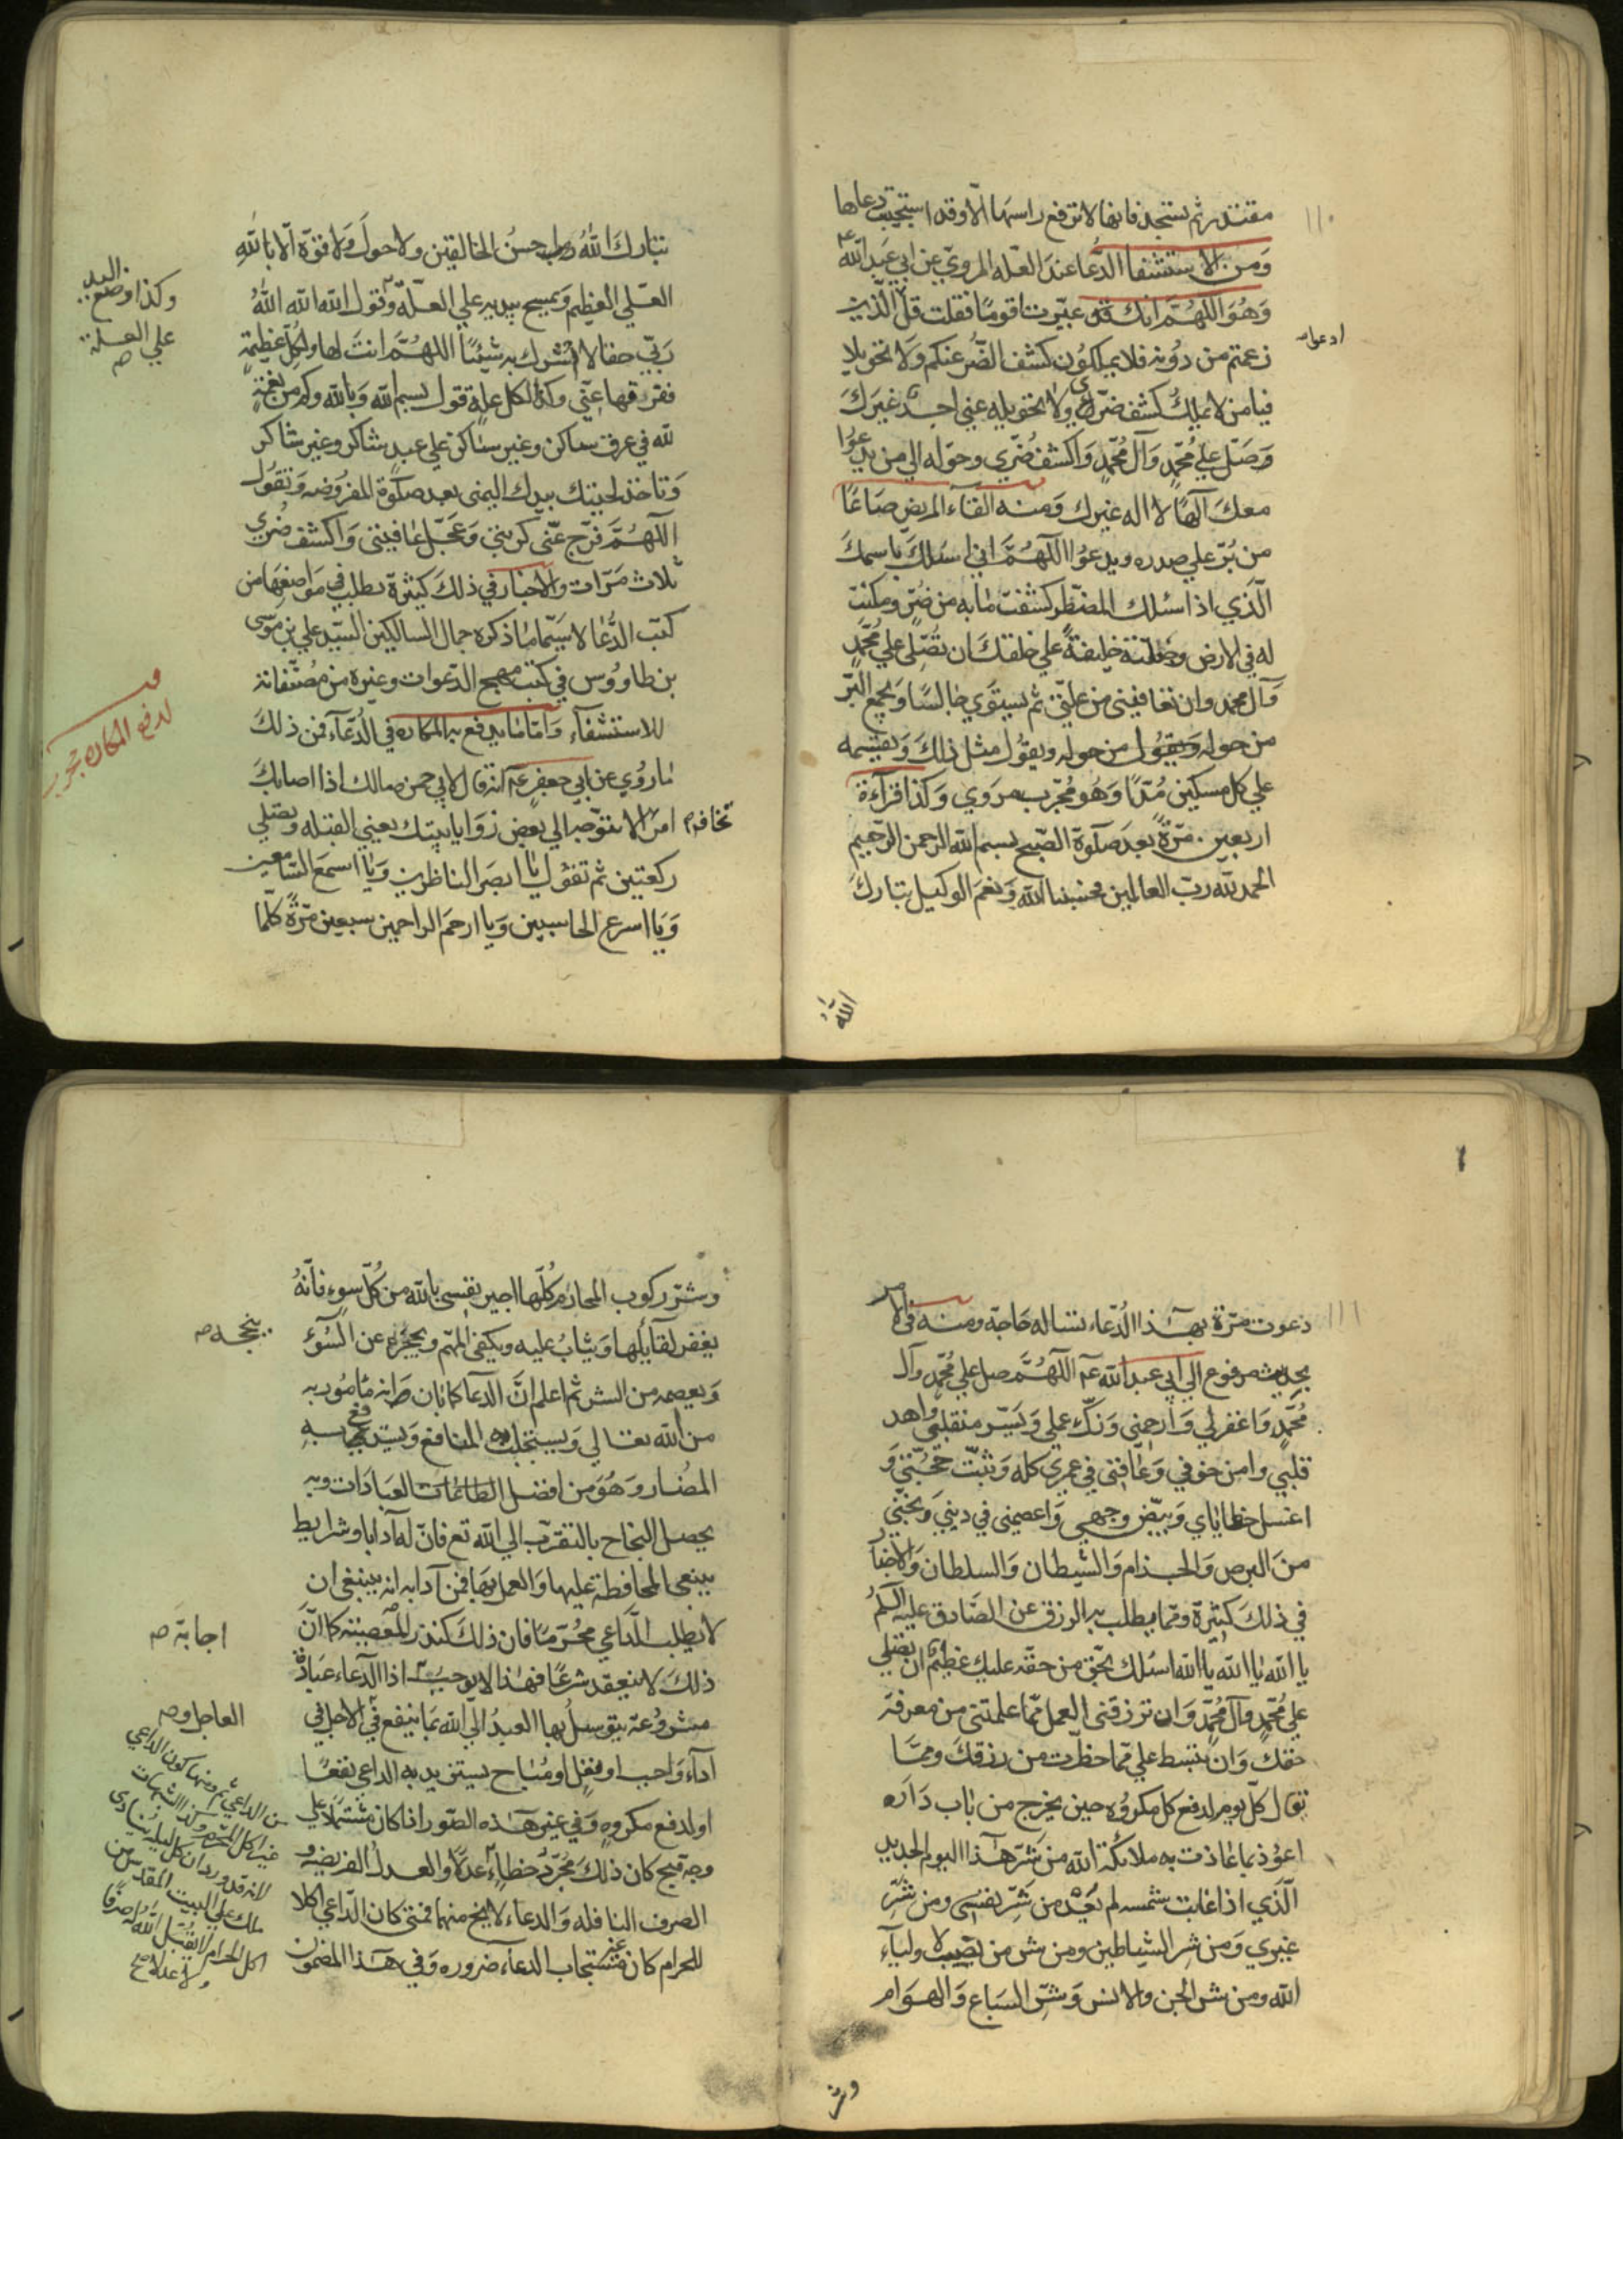 ١١٠
مقتدر ثم تسجد فانها لا ترفع راسها الا وقد استجيب دعاها
وَمن الاستشفا الدّعا عند العله المرويّ عن ابي عَبد الله عم
وَهُوَ اللهُمَّ انك قد عيّرت اقومًا فقلت قل ادعوا الّذين
زعمتم من دُونه فلا يملكُون كشف الضُّر عنكم وَلا تحويلا
فيا من لا يملكُ كشف ضرّي ولا تحويله عني احدٌ غيرَكَ
وَصَلّ علي مُحمّدٍ وَآل مُحمّدٍ وَاكشف ضُرّي وحوّله الي من يدعوُا
معكَ آلهًا لا اله غيرك وَمنه القاء المريض صَاعًا
من بُرّ علي صدره ويدعوُا اللهُمَّ اني اسئلكَ باسمكَ
الّذي اذا سئلك المضطر كشفت ما به من ضُرّ ومكنت
له في الارض وجعلته خليفةً علي خلقكَ ان تُصَلّي علي مُحمّدٍ
وَآل محمد وان تعافيني من علتي ثم يستوَي جالسًا وَيجمع البرّ
من حوله وَيقوُل من حوله ويقوُل مثل ذلكَ وَيقسمه
علي كل مسكين مُدّا وَهُو مُجرّب مروَي وَكذا قرآءة
اربعين مَرّةً بعدَ صَلوة الصّبح بسم الله الرحمن الرّحيم
الحمد للّه ربّ العالمين حسبنا الله وَنعمَ الوكيل تباركَ
اللهُ
تباركَ اللهُ احسنُ الخالقين ولا حولَ وَلا قوّة الّا باللهِ
العلي العظيم وَيمسح بيديه علي العلّة وتقول الله الله اللهُ
وكذا وضع اليد
علي العلة صح
رَبّي حقا لا اشرك به شيئًا اللهُمَّ انتَ لها ولكُلّ عظيمةٍ
ففرّقها عنّي وكذا لكل علة تقول بسم الله وَبالله وكم من نعمةٍ
للّه في عرق ساكن وغير ساكن علي عبدٍ شاكر وغير شاكر
وَتاخذ لحيتك بيدك اليمنى بعد صلوة المفروضه وَتقوُل
اللهُمَّ فرّج عنّي كربتي وَعجّل عافيتي وَاكشف ضُري
ثلاث مَرّات والاخبار في ذلكَ كثيرة تطلب في مَواضعهَا من
كتب الدُّعا لا سيّما ما ذكره جمال السالكين السّيد علي بن موُسى
بن طاووُس في كتب مهج الدّعوات وغيره من مُصنّفاته
للاستشفآء وَامّا ما يدفع به المكاره في الدُّعآء فمن ذلكَ
لدفع المكاره مجرب
ما رُوي عن ابي جعفرٍ عم انه قال لابي حمزه مالك اذا اصابكَ
امر تخافه ان لا تتوّجه الي بعض زوَايا بيتك يعني القبله وتصلي
ركعتين ثم تقوُل يا ابصَر الناظرين وَيا اسمعَ السّامعين
وَيا اسرع الحاسبين وَيا ارحمَ الراحمين سبعين مَرّةً كلّما
١١١
دعوت مرّة بهذا الدُّعاء تساله حَاجة ومنه في
بحديث مرفوع الي ابي عبد الله عم اللهُمَّ صل علي مُحمّد وآل
مُحمّدٍ وَاغفر لي وَارحمني وَزكّ عملي وَيَسّر منقلبي واهد
قلبي وامن خوفي وَعافني في عمري كله وَثبّت حجّتي وَ
اغسل خطاياي وَبيّض وجهي وَاعصمني في ديني وَجنّبني
منَ البرص وَالجذام وَالشيطان وَالسلطان وَالاخبا
في ذلكَ كثيرة وممّا يطلب به الرزق عن الصّادق عليه السّلمُ
يا الله يا الله يا الله اسئلك بحقّ من حقّه عليك عظيمٌ ان تصلي
علي مُحمّدٍ وآل مُحمّدٍ وَان ترزقني العمل ممّا علمتني من معرفة
حقكَ وَان تبسط علي ممّا حظرت من رزقكَ وممّا
تقال كلّ يوم لدفع كل مكروُه حين يخرج من باب دَاره
اعوُذ بما عاذت به ملائكة الله من شَرّ هذا اليوم الجديد
الّذي اذا غابت شمسه لم يَعُد من شَرّ نفسي ومن شَرّ
غيري وَمن شر الشياطين ومن شر من نصب لاوليآءِ
الله ومن شر الجن والانس وَشرّ السّباع وَالهوَام
وشر
وشرّ ركوب المحارم كُلّها اجير نفسي بالله من كُلّ سوءٍ فانّهُ
يغفر لقآيلها وَيثابُ عليه ويكفى المهم ويحجزه عن السُوٓء
ينجحه صح
وَيعصمه من الشر ثم اعلم انَّ الدّعا كما بان مامُور به
من الله تعالي وَيستجلب به المنافع وَيستدفع به
المضار وَهُوَ من افضل الطاعات العبادَات وبه
يحصل النجاح بالتقرّب الي الله تع فانّ له آدابا وشرايط
ينبغي المحافظة عليها وَالعمل بها فمن آدابه انه ينبغي ان
لا يطلب الدّاعي مُحرّمًا فان ذلكَ كنذر المعصية كما انَّ
ذلكَ لا ينعقد شرعًا فهذا لا يوجبُ اجابة صح اذا الدّعاء عبَادةٌ
مشروُعة يتوسلُ بها العبدُ الي الله بمَا ينفع في العاجل و صح الآجل في
ادآء وَاجب او نفل او مُباح يستزيد به الداعي نفعًا
او لدفع مكروهٍ وَفي غير هذه الصّور اذا كان مشتملًا علي
وجه قبيح كان ذلكَ مُجرّدُ خطاءٍ
الصرف النافله وَالدعاء لا يخ منهما فمتى كان الدّاعي اكلا
للحرام كان غير مستجاب الدعاء ضروره وَفي هذا المضمون